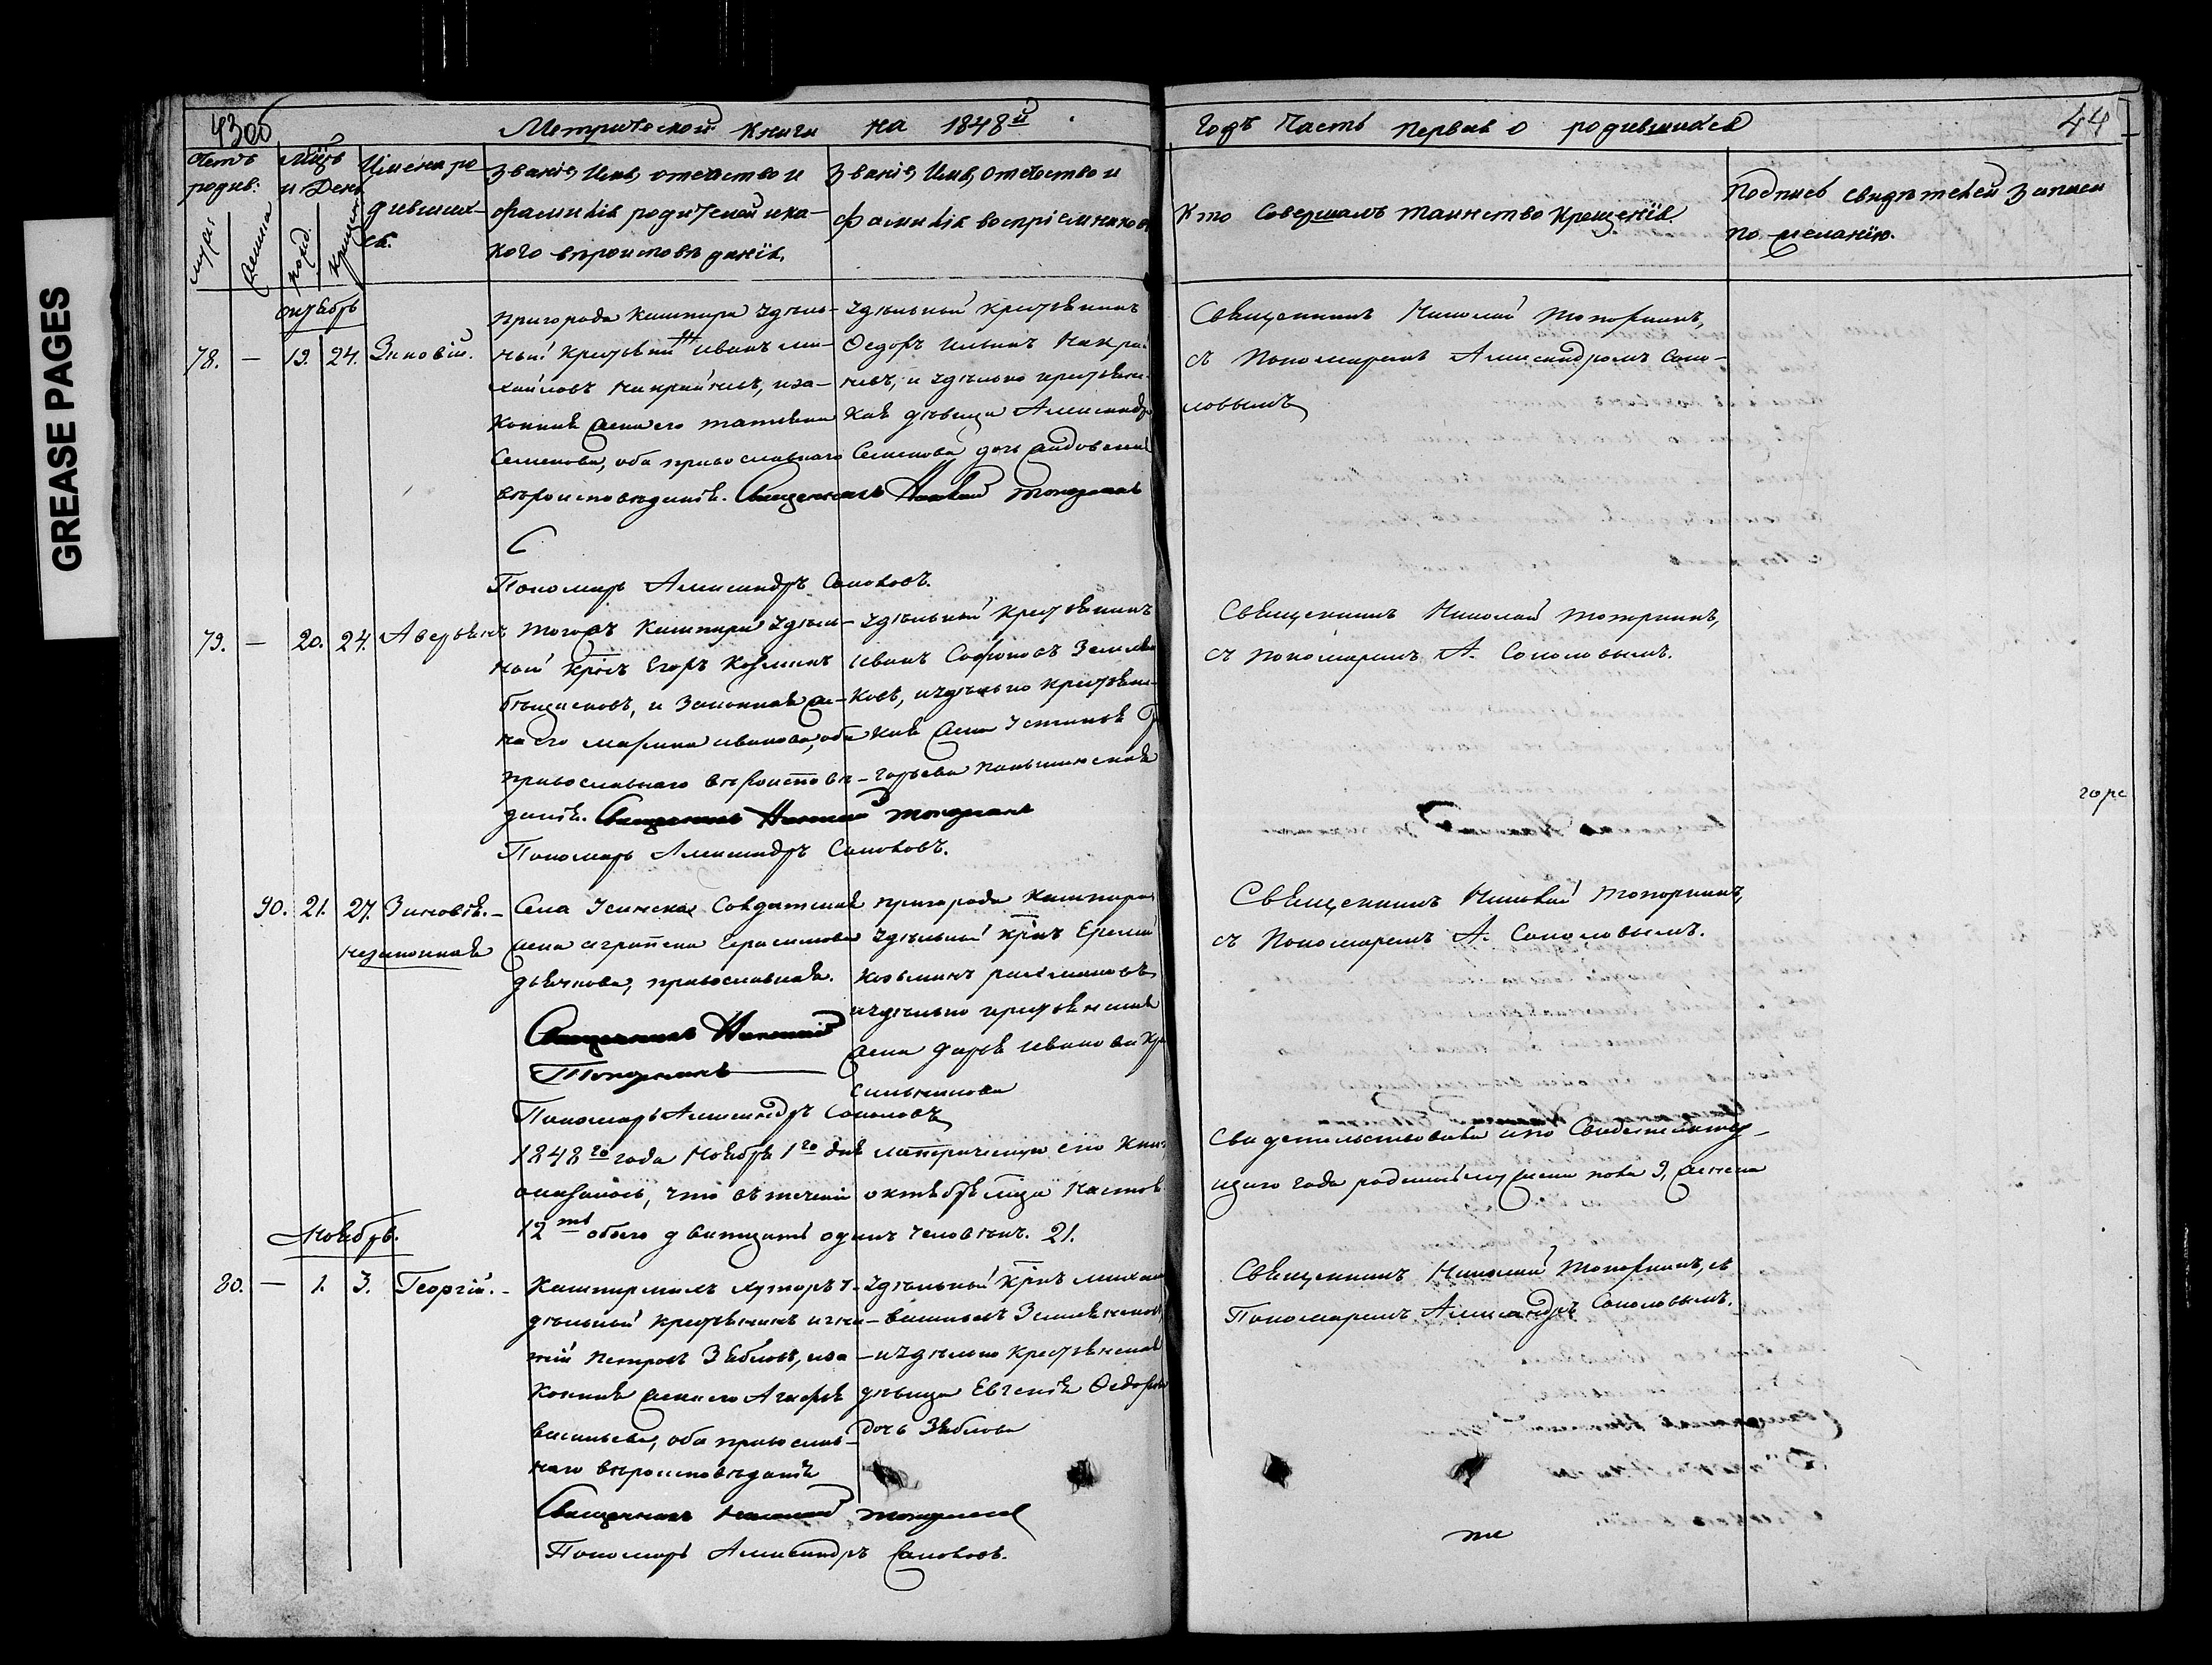 GREASE PAGES
43об
Метрической книги на 1848й
Годъ Часть первая о родившихся
44
Счетъ родив:
муж:
женска
Мцъ и День
рожд.
крещен
Имена родившихся.
Званіе, Имя, отчество и
фамилія родителей и ка-
кого вѣроисповѣданія.
Званіе, Имя, Отчество и
фамилія воспріемниковъ
Кто совершалъ таинство крещенія.
Подпись свидѣтелей записи
по желанію.
Октябрь
78. — 19. 24. Зиновій.
Пригорода Кашпира удѣль-
ный крестьянинъ Иванъ Ми-
хайловъ и за-
конная жена его Татьяна
Семенова, оба православнаго
вѣроисповѣданія. Священникъ Николай Топорнинъ
Пономарь Александръ Соколовъ.
Удѣльный крестьянинъ
Федоръ Ильинъ
и удѣльно крестьянс-
кая дѣвица Александра
Семенова дочь
Священникъ Николай Топорнинъ,
съ Пономаремъ Александромъ Соко-
ловымъ
79. — 20. 24. Аверьянъ
Тогожъ Кашпира удѣль-
ной крнъ Егоръ Козминъ
и законная же-
на его Марина Иванова, оба
православнаго вѣроисповѣ-
данія. Священникъ Николай Топорнинъ
Пономарь Александръ Соколовъ.
Удѣльный крестьянинъ
Иванъ Софоновъ Земляня
ковъ, и удѣльно крестьянс-
кая жена Устинья
Священникъ Николай Топорнинъ,
съ Пономаремъ А. Соколовымъ.
горе
90. 21. 27. Зиновія. —
незаконная
Села Усинска Солдатская
жена Агрипена Герасимова
Дьячкова, православная.
Священникъ Николай
Топорнинъ
Пономарь Александръ Соколовъ
пригорода Кашпира
удѣльный крнъ Еремѣй
Козьминъ
и удѣльно крестьянская
жена Дарья Иванова Кра
сильникова
Священникъ Николай Топорнинъ,
съ Пономаремъ А. Соколовымъ.
1848го года Ноября 1го дня метрическую сію книгу
свидетельствовали и по свидетельству
оказалось, что въ теченіи октября мца настоя
щаго года родившихся мужеска пола 9, женска
12ть обоего дватцать одинъ человѣкъ. 21.
Ноябрь.
80. — 1. 3. Георгій. —
Кашпирскихъ хуторъ у-
дѣльный крестьянинъ Игна-
тій Петровъ Зябловъ, и за-
конная жена его Агафья
Васильева, оба православ-
наго вѣроисповѣданія
Священникъ Николай Топорнинъ
Пономарь Александръ Соколовъ.
Удѣльный крнъ Михаилъ
Васильевъ Земляняковъ,
и удѣльно крестьянская
дѣвица Евгенія Федорова
дочь Зяблова
Священникъ Николай Топорнинъ, съ
Пономаремъ Александръ Соколовымъ.
те